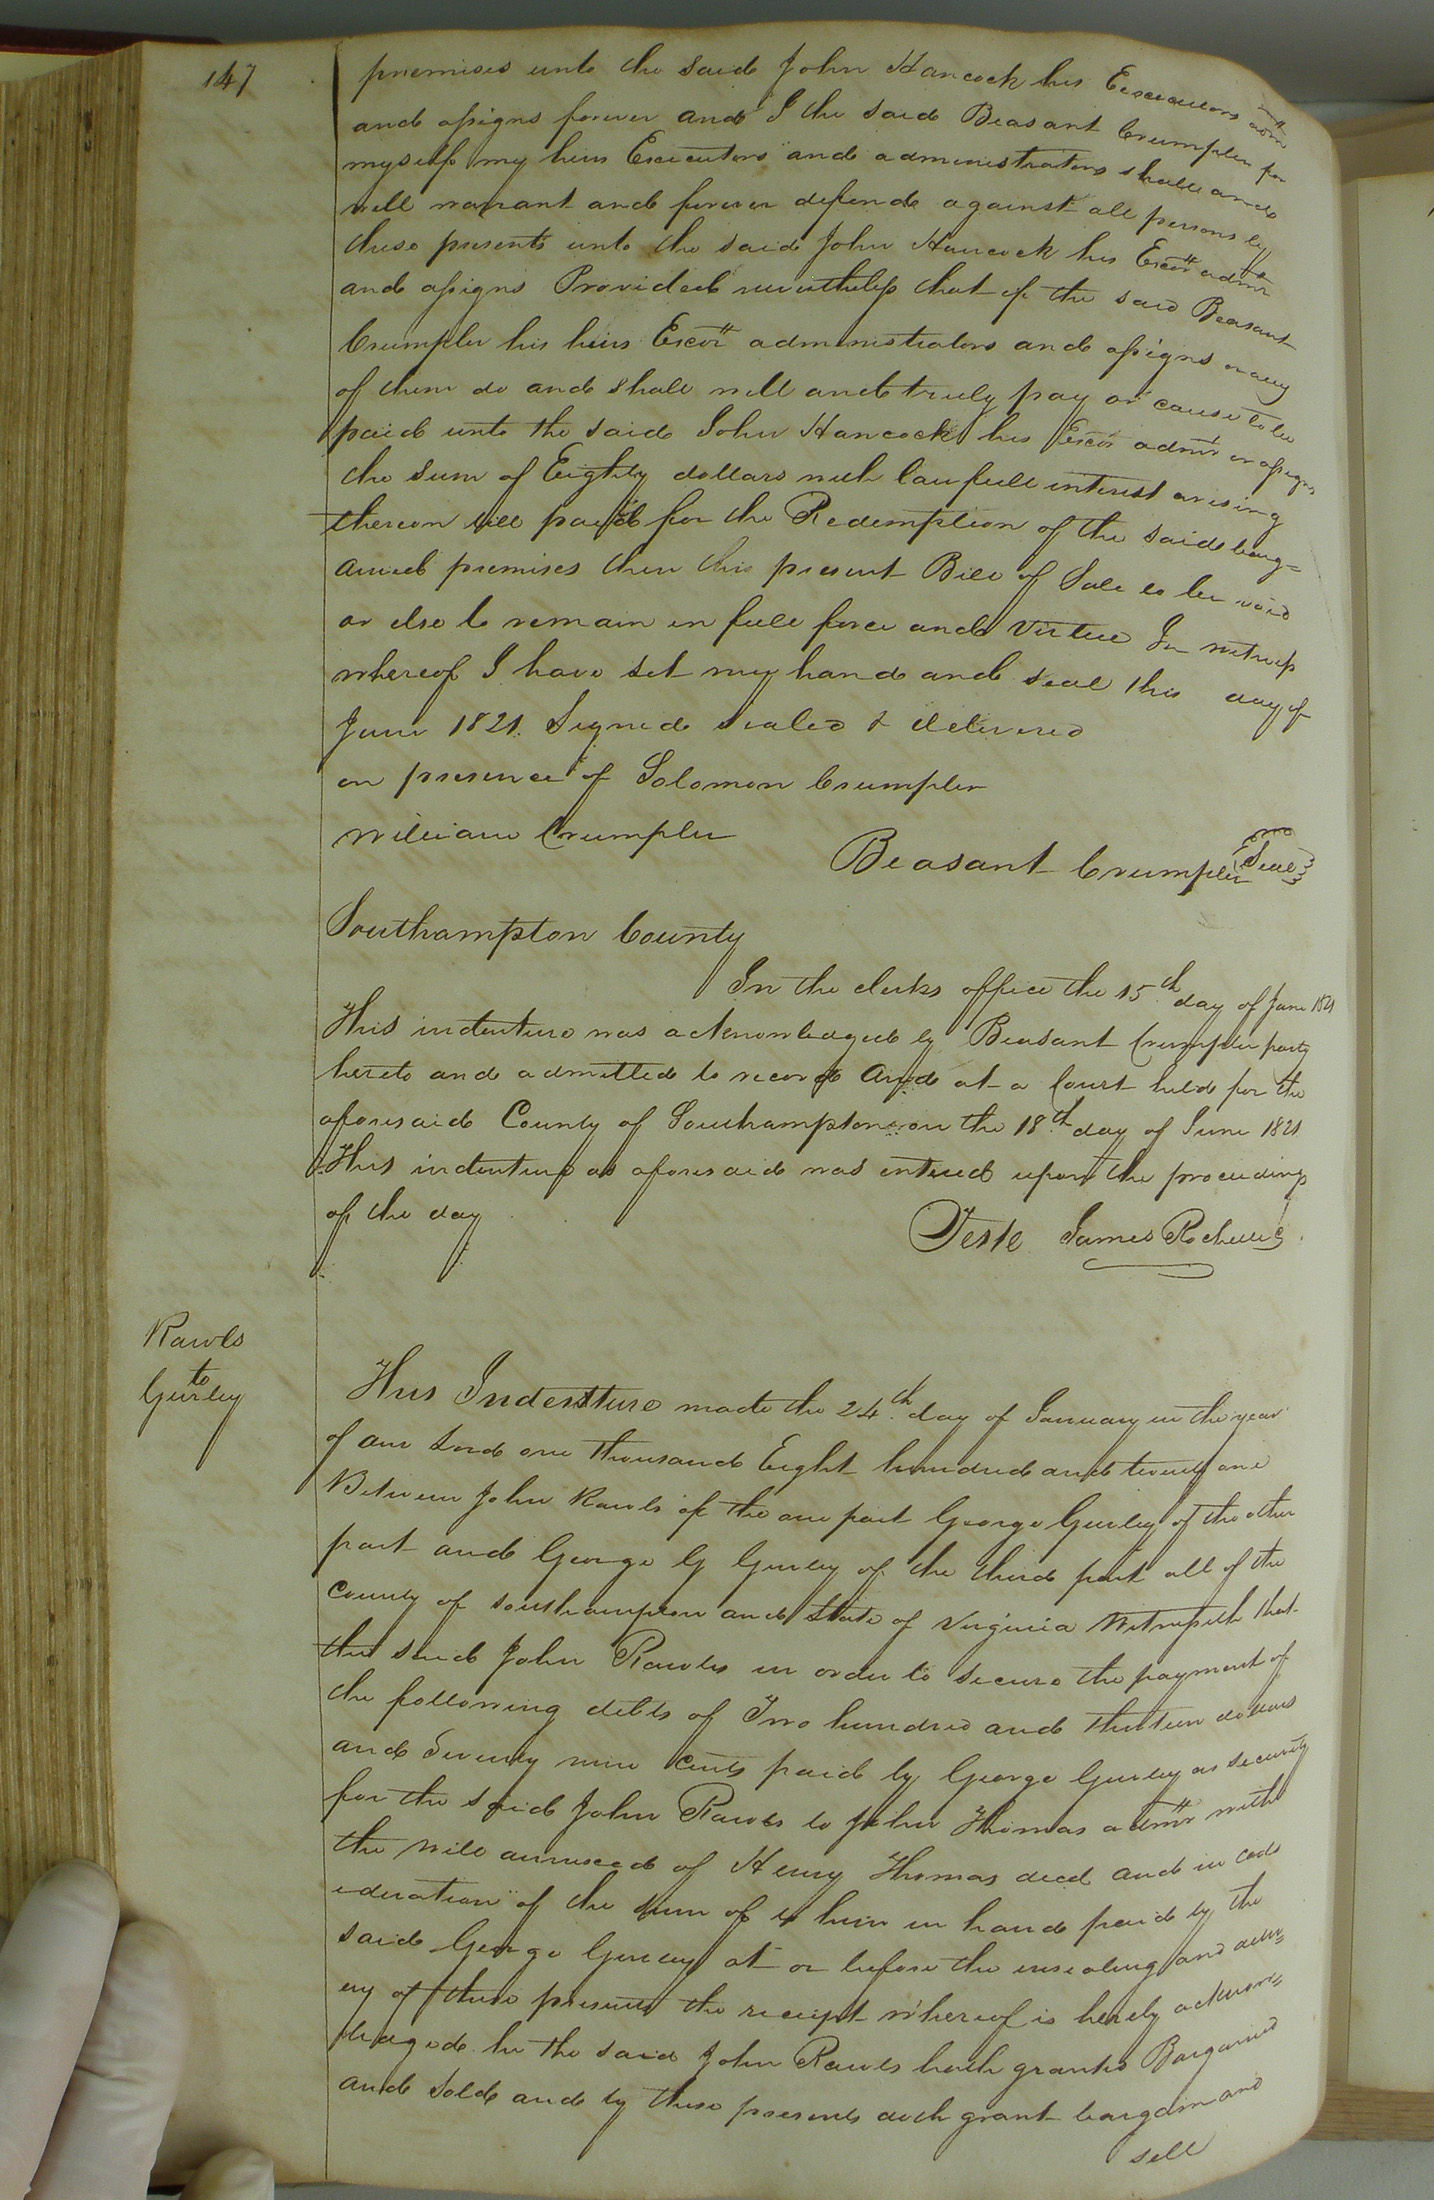 147
premises unto the said John Hancock his Executors admrs
and assigns forever and I the said Beasant Crumpler for
myself my heirs Executors and administrators shall and
will warrant and forever defend against all persons by
these presents unto the said John Hancock his Excrs admrs
and assigns Provided nevertheless that if the said Beasant
Crumpler his heirs Excrs administrators and assigns or any
of them do and shall well and truly pay or cause to be
paid unto the said John Hancock his Excrs admrs or assigns
the Sum of Eighty dollars with lawfull interest arising
thereon till paid for the Redemption of the said barg=
ained premises then this present Bill of Sale to be void
or else to remain in full force and Virtue In witness
whereof I have set my hand and seal this day of
June 1821. Signed sealed & delivered
in presence of Solomon Crumpler
William Crumpler
Beasant Crumpler Seal
Southampton County
In the clerks office the 15th day of June 1821
This indenture was acknowledged by Beasant Crumpler party
hereto and admitted to record And at a Court held for the
aforesaid County of Southampton on the 18th day of June 1821
This indenture as aforesaid was entered upon the proceedings
of the day
Teste James Rochelle
Rawls
to
Gurley
This Indenture made the 24th day of January in the year
of our Lord one thousand Eight hundred and twenty one
Between John Rawls of the one part George Gurley of the other
part and George G Gurley of the third part all of the
County of Southampton and State of Virginia Witnesseth that
the said John Rawls in order to secure the payment of
the following debts of Two hundred and thirteen dollars
and Seventy nine Cents paid by George Gurley as security
for the said John Rawls to John Thomas admr with
the will annexed of Henry Thomas decd and in cons
ideration of the sum of to him in hand paid by the
said George Gurley at or before the ensealing and deliv=
ery of these presents the receipt whereof is hereby acknow=
ledged he the said John Rawls hath granted Bargained
and Sold and by these presents doth grant bargain and
sell